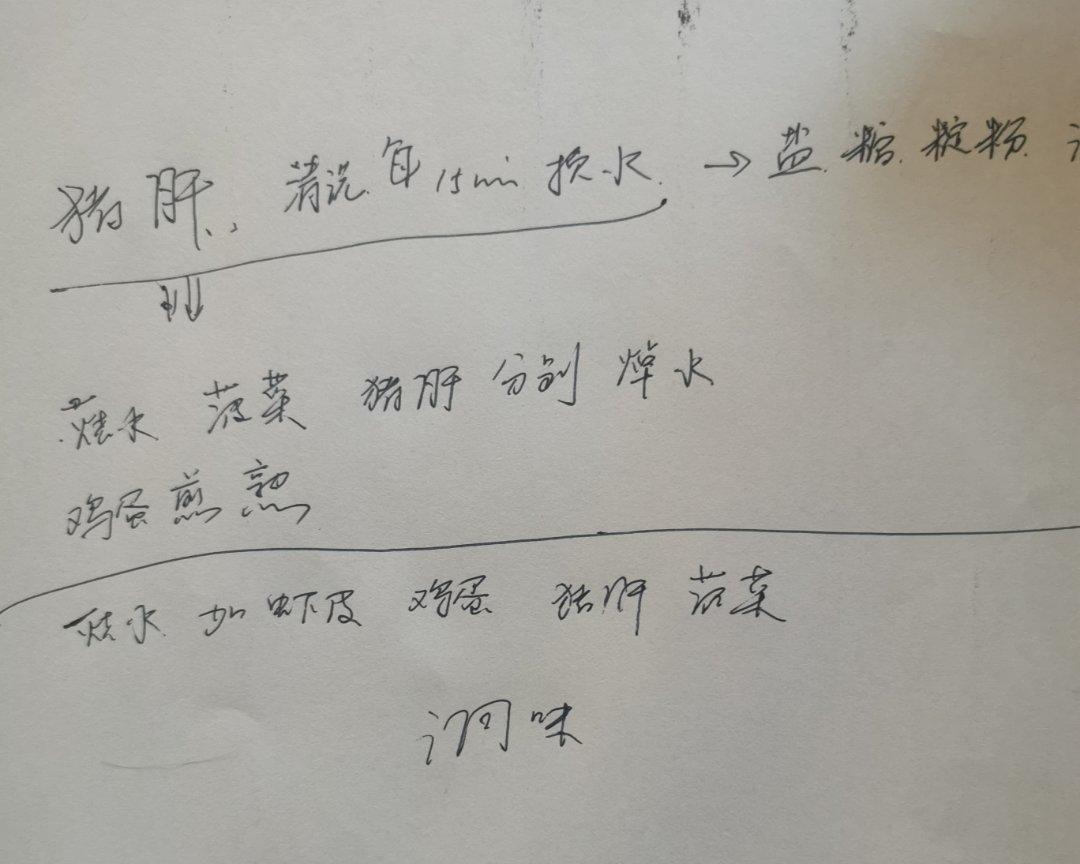 猪肝. 清洗 每15min 换水. → 盐. 糖. 锭粉.
烧水 菠菜 猪肝 分别 焯水
鸡蛋煎熟
烧水 加虾皮 鸡蛋 猪肝 菠菜
调味